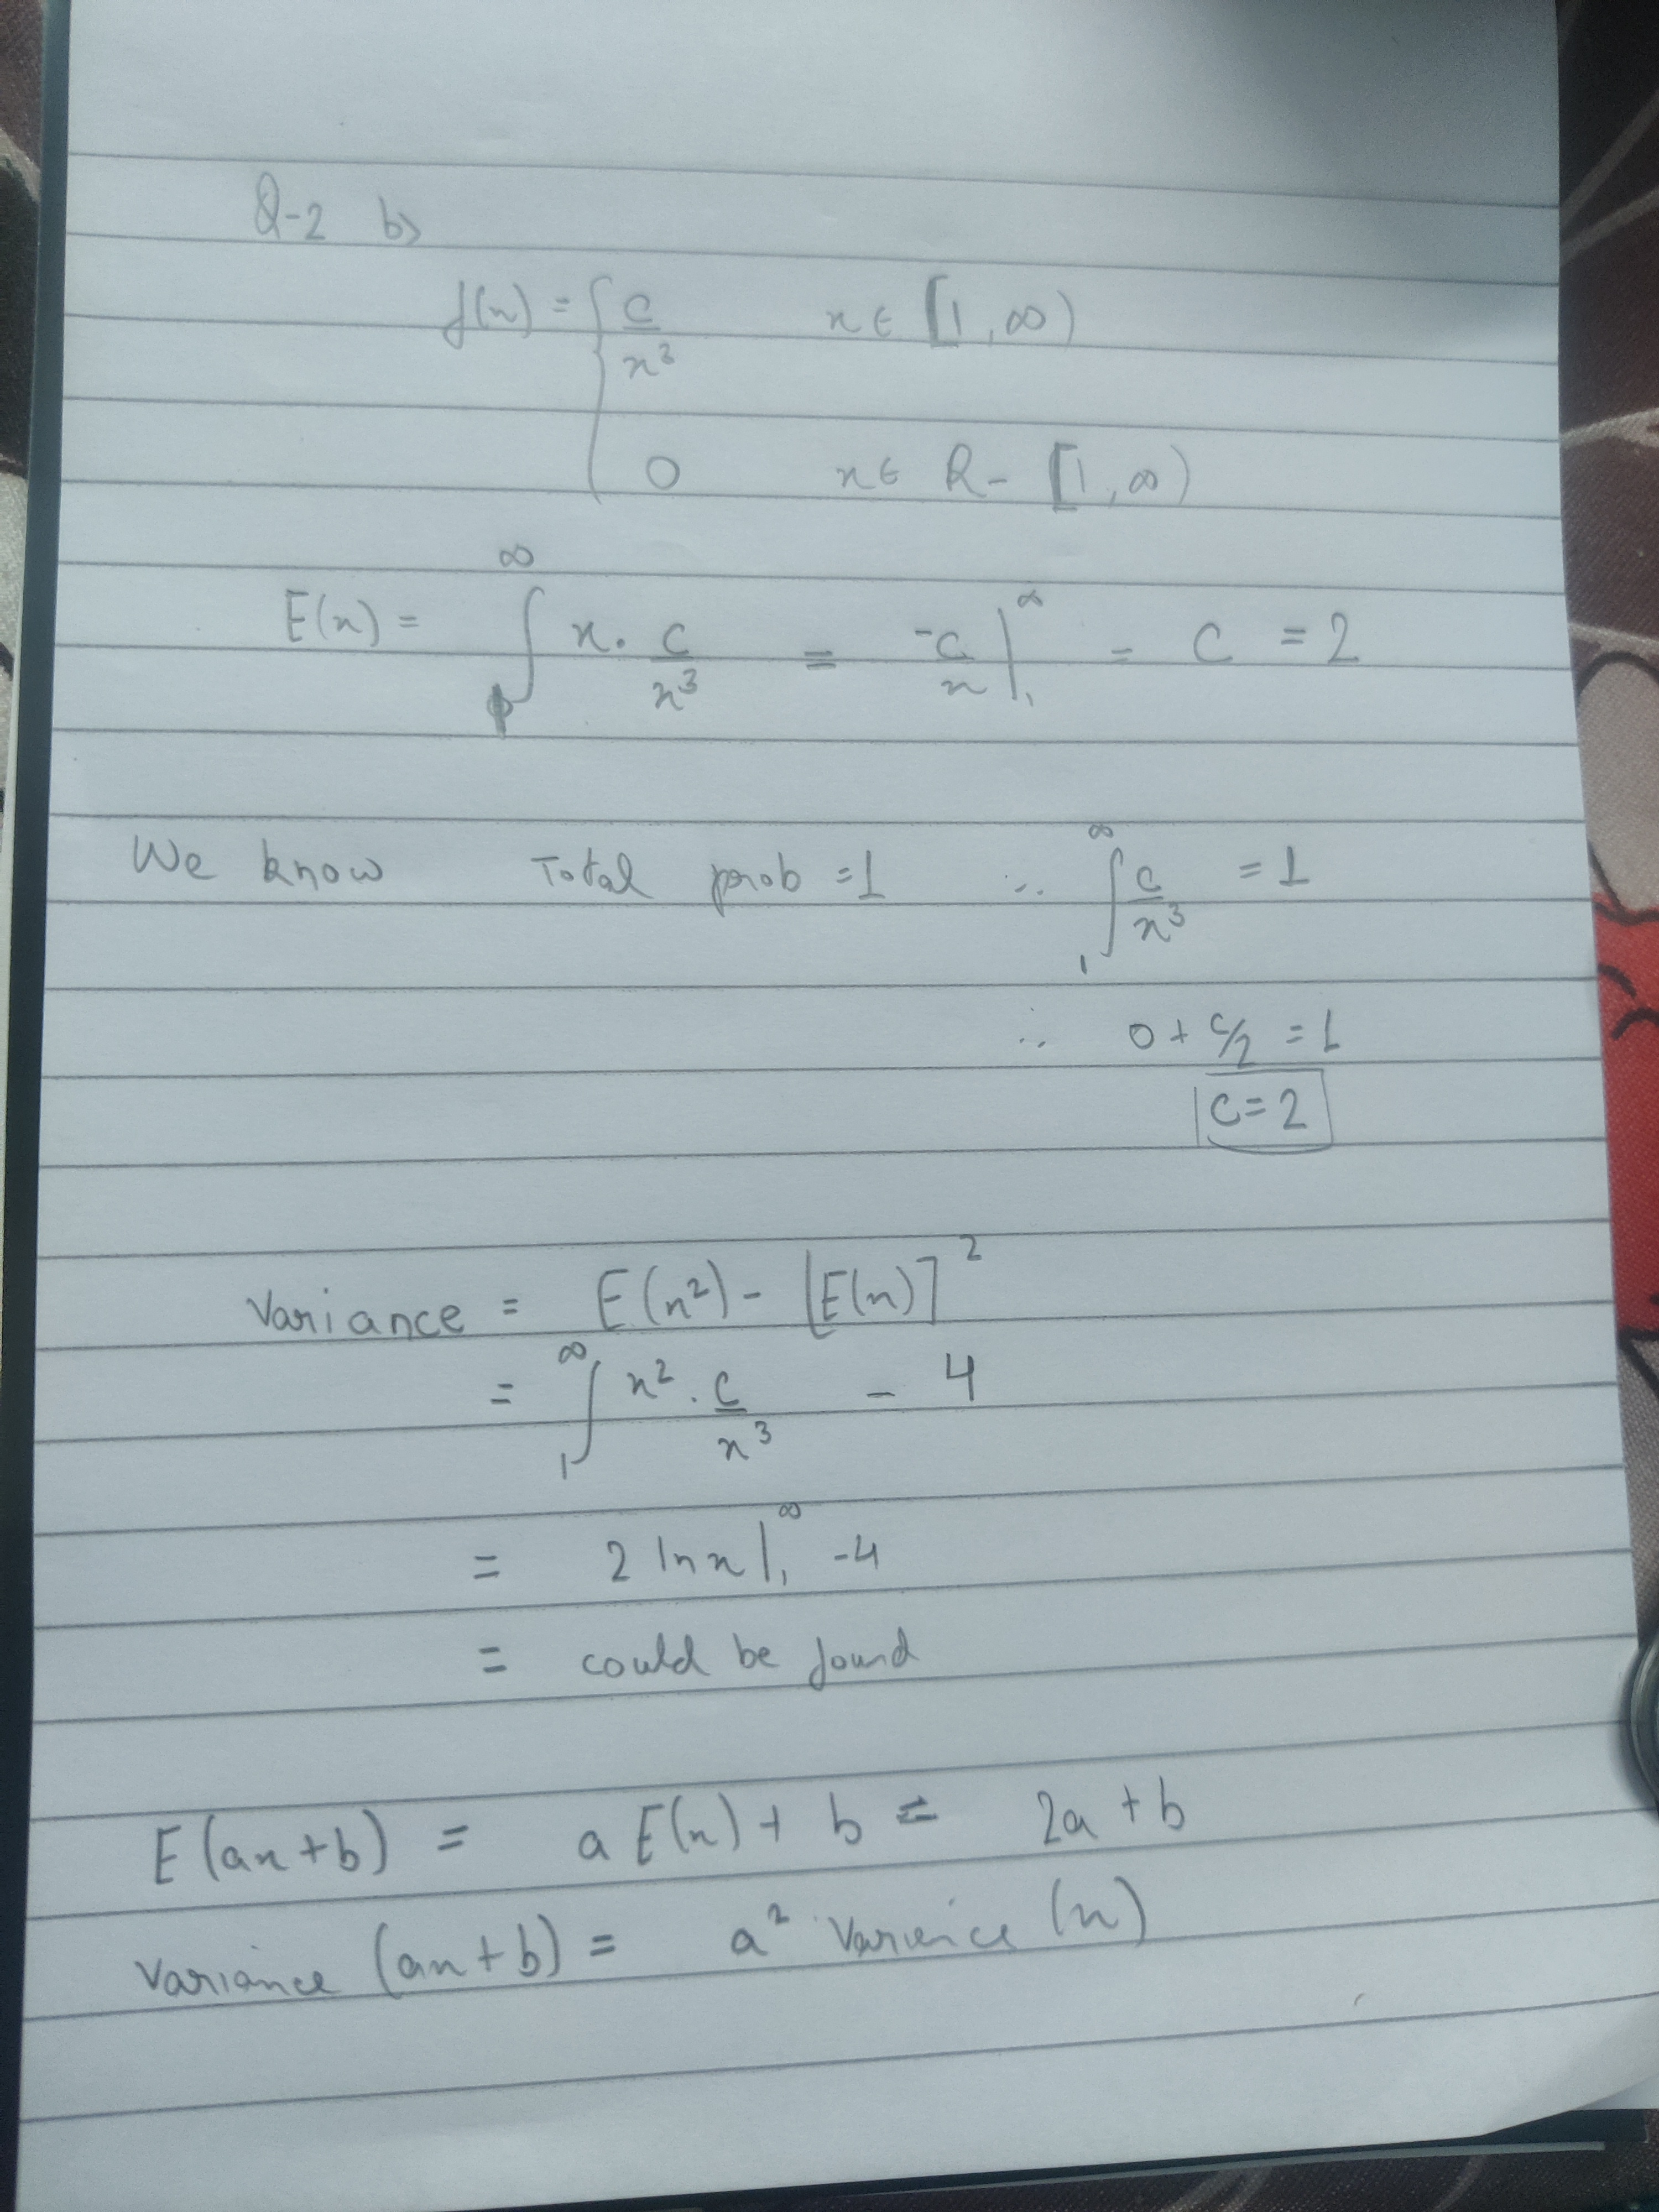 Q-2 b>
f(x) = { c/x³ x ∈ [1, ∞)
0 x ∈ R - [1, ∞)
E(x) = ∫₁^∞ x · c/x³ = -c/x |₁^∞ = c = 2
We know Total prob = 1 ∴ ∫₁^∞ c/x³ = 1
∴ 0 + c/2 = 1
c = 2
Variance = E(x²) - [E(x)]²
= ∫₁^∞ x² · c/x³ - 4
= 2 ln x |₁^∞ - 4
= could be found
E(ax+b) = a E(x) + b = 2a + b
Variance (ax+b) = a² Varience (x)